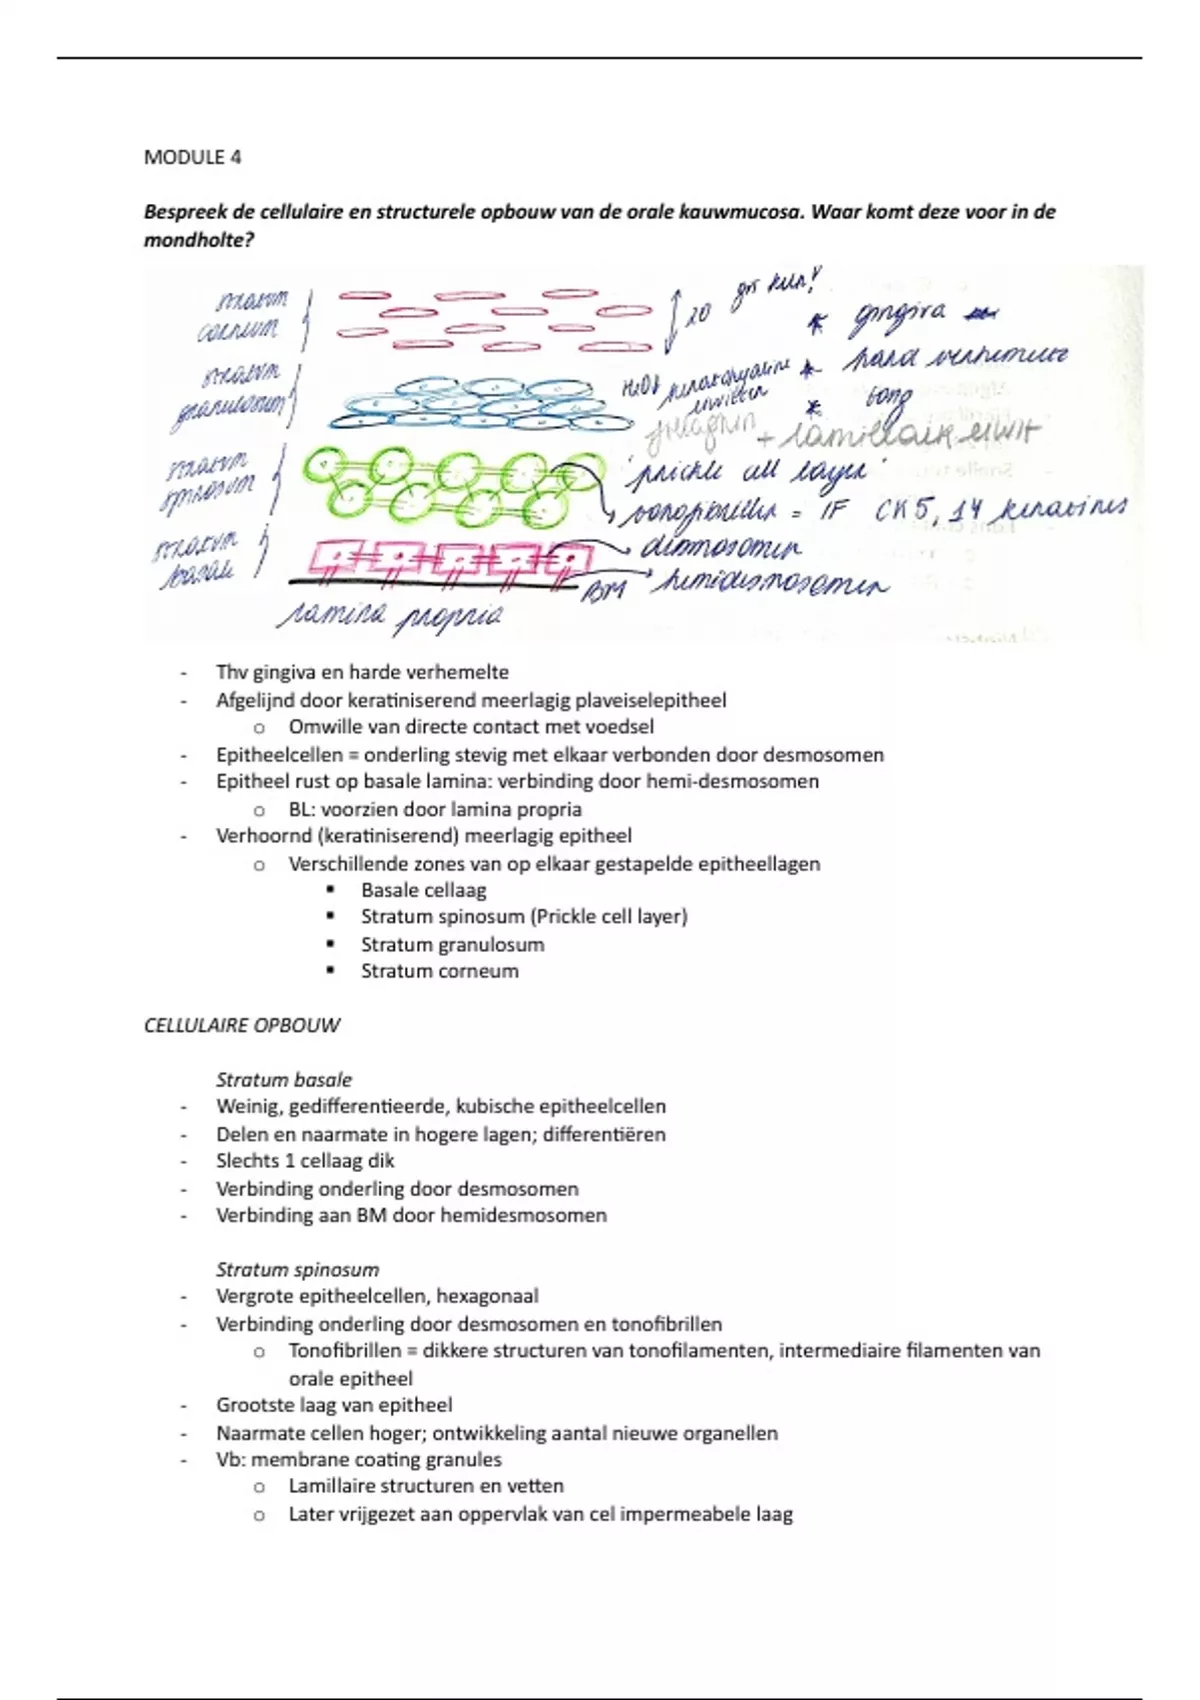 MODULE 4
Bespreek de cellulaire en structurele opbouw van de orale kauwmucosa. Waar komt deze voor in de
mondholte?
stratum
corneum
20
gingiva
stratum
granulosum
H2O
keratohyaline
eiwitten
hard verhemelte
tong
filaggrin + lamillair eiwit
stratum
spinosum
'prickle cell layer'
tonofibrillen = IF CK5, 14 keratines
stratum
basale
desmosomen
BM
hemidesmosomen
lamina propria
- Thv gingiva en harde verhemelte
- Afgelijnd door keratiniserend meerlagig plaveiselepitheel
o Omwille van directe contact met voedsel
- Epitheelcellen = onderling stevig met elkaar verbonden door desmosomen
- Epitheel rust op basale lamina: verbinding door hemi-desmosomen
o BL: voorzien door lamina propria
- Verhoornd (keratiniserend) meerlagig epitheel
o Verschillende zones van op elkaar gestapelde epitheellagen
▪ Basale cellaag
▪ Stratum spinosum (Prickle cell layer)
▪ Stratum granulosum
▪ Stratum corneum
CELLULAIRE OPBOUW
Stratum basale
- Weinig, gedifferentieerde, kubische epitheelcellen
- Delen en naarmate in hogere lagen; differentiëren
- Slechts 1 cellaag dik
- Verbinding onderling door desmosomen
- Verbinding aan BM door hemidesmosomen
Stratum spinosum
- Vergrote epitheelcellen, hexagonaal
- Verbinding onderling door desmosomen en tonofibrillen
o Tonofibrillen = dikkere structuren van tonofilamenten, intermediaire filamenten van
orale epitheel
- Grootste laag van epitheel
- Naarmate cellen hoger; ontwikkeling aantal nieuwe organellen
- Vb: membrane coating granules
o Lamillaire structuren en vetten
o Later vrijgezet aan oppervlak van cel impermeabele laag